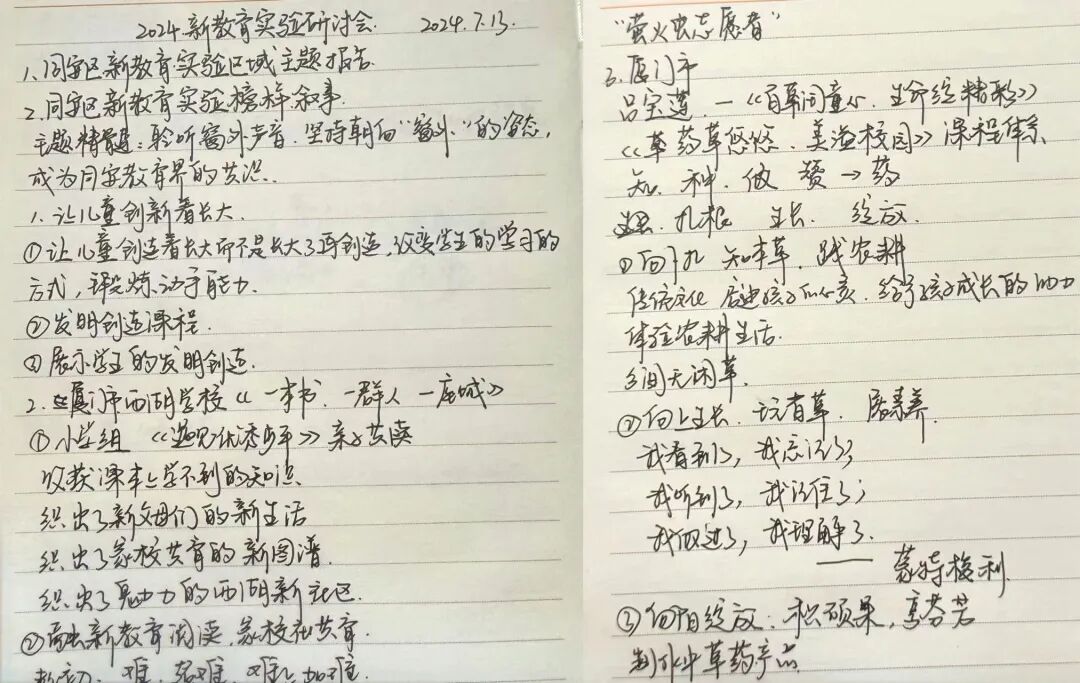 2024.新教育实验研讨会. 2024.7.13
1、同安区新教育实验区域主题报告
2、同安区新教育实验榜样叙事.
主题精髓：聆听窗外声音，坚持朝向“窗外”的姿态，
成为同安教育界的共识.
1、让儿童创新着长大.
①让儿童创造着长大而不是长大了再创造，改变学生的学习的
方式，锻炼动手能力.
②发明创造课程.
③展示学生的发明创造.
2、厦门市西湖学校《一本书、一群人、一座城》
①小学组《遇见优秀少年》亲子共读
收获课本上学不到的知识
织出了新父母们的新生活
织出了家校共育的新图谱.
织出了魅力的西湖新社区.
②新教育阅读、家校社共育.
难、难、难
“萤火虫志愿者”
3、厦门市
吕宝莲 —《百草润童心、生命绽精彩》
《草药草悠悠、美溢校园》课程体系
知、种、做、赞→药
扎根 生长、绽放.
①向下扎 知本草、践农耕
传统文化 启迪孩子的心灵、给予孩子成长的动力
体验农耕生活.
乡间无闲草.
②向上生长、玩百草、启素养.
我看到了，我忘记了；
我听到了，我记住了；
我做过了，我理解了.
—— 蒙特梭利
③向阳绽放：积硕果，享芬芳
制作中草药产品